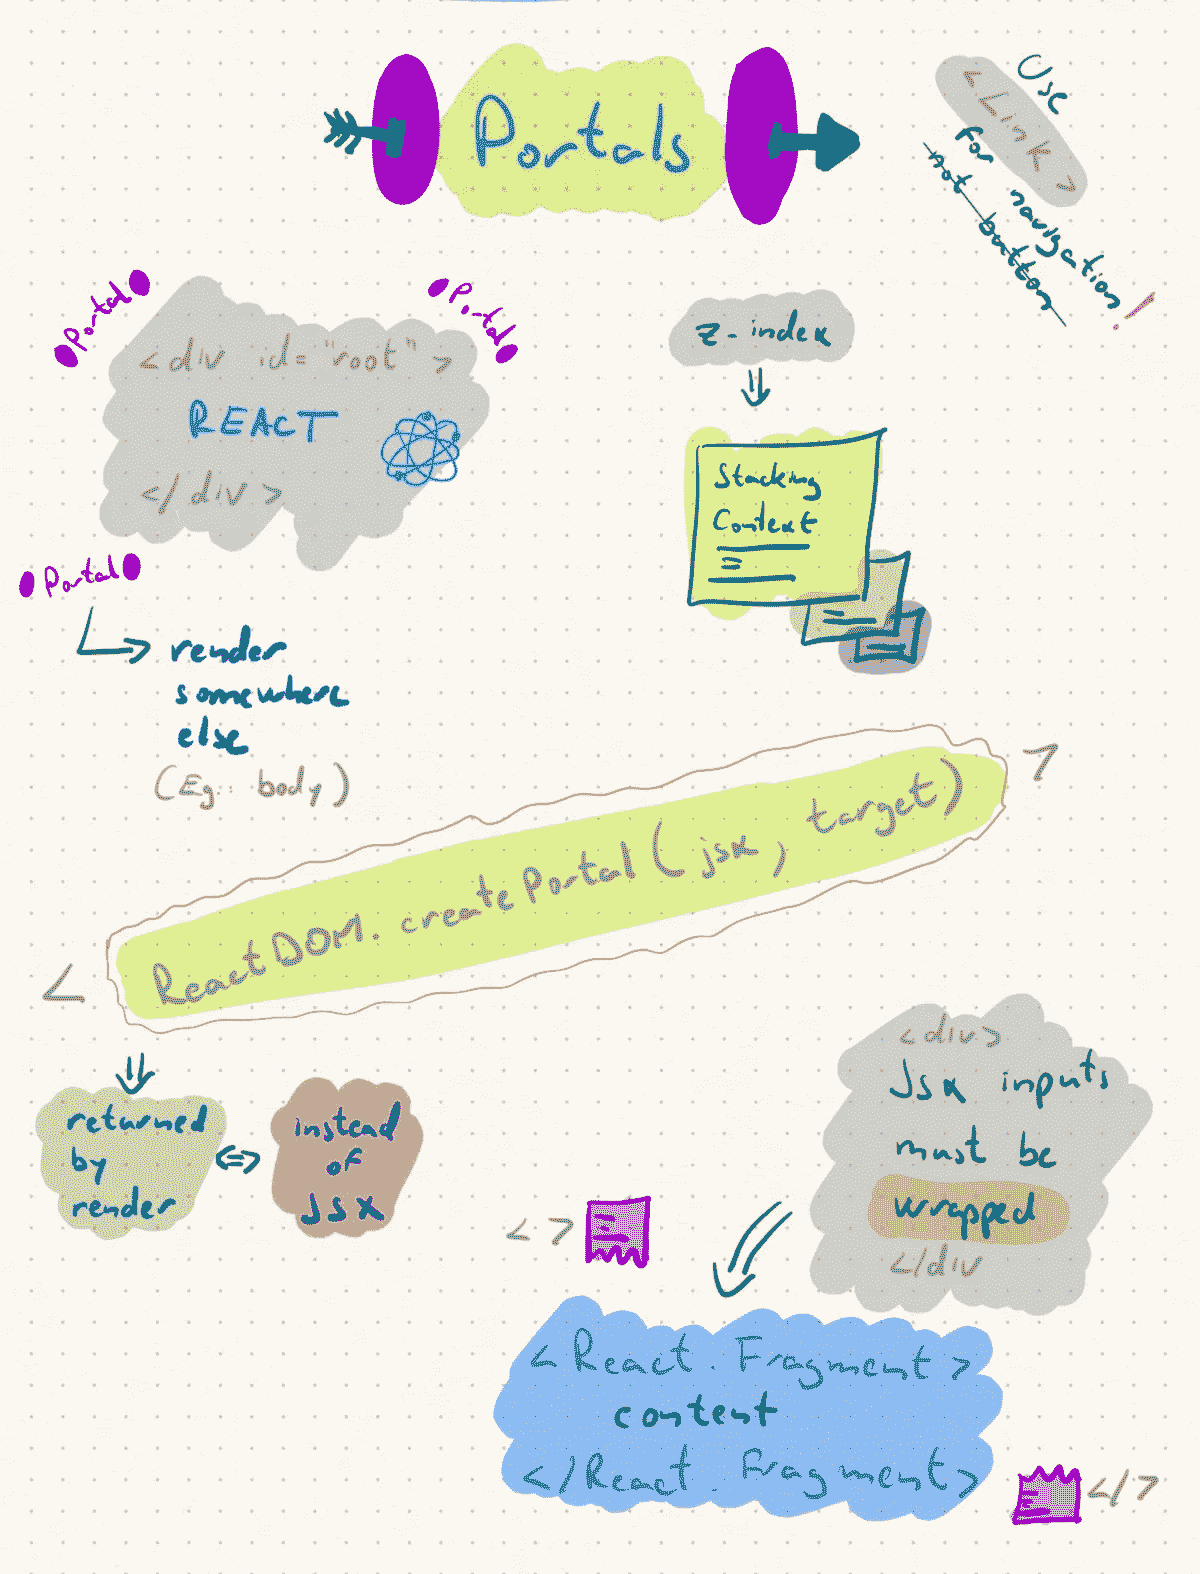 Portals
Use
<Link>
for navigation!
not button
Portal
Portal
<div id="root">
REACT
</div>
Portal
render
somewhere
else
(Eg. body)
z-index
Stacking
Context
< ReactDOM.createPortal(jsx, target) >
returned
by
render
<=>
instead
of
JSX
<div>
Jsx inputs
must be
wrapped
</div
<>
<React.Fragment>
content
</React.Fragment>
</>